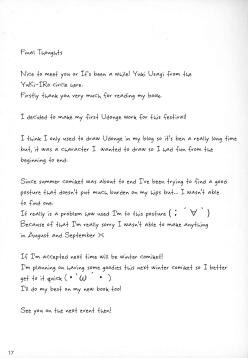 Final Thoughts
Nice to meet you or It's been a while! Yuki Usagi from the
YuKi-IRo circle here.
Firstly thank you very much for reading my book.
I decided to make my first Udonge work for this festival!
I think I only used to draw Udonge in my blog so it's ben a really long time
but, it was a character I wanted to draw so I had fun from the
beginning to end.
Since summer comiket was about to end I've been trying to find a good
posture that doesn't put much burden on my hips but... I wasn't able
to find one.
It really is a problem how used I'm to this posture (；´∀`)
Because of that I'm really sorry I wasn't able to make anything
in August and September ><
If I'm accepted next time will be winter comiket!!
I'm planning on having some goodies this next winter comiket so I better
get to it quick (•`ω´•)
I'll do my best on my new book too!
See you on the next event then!
17